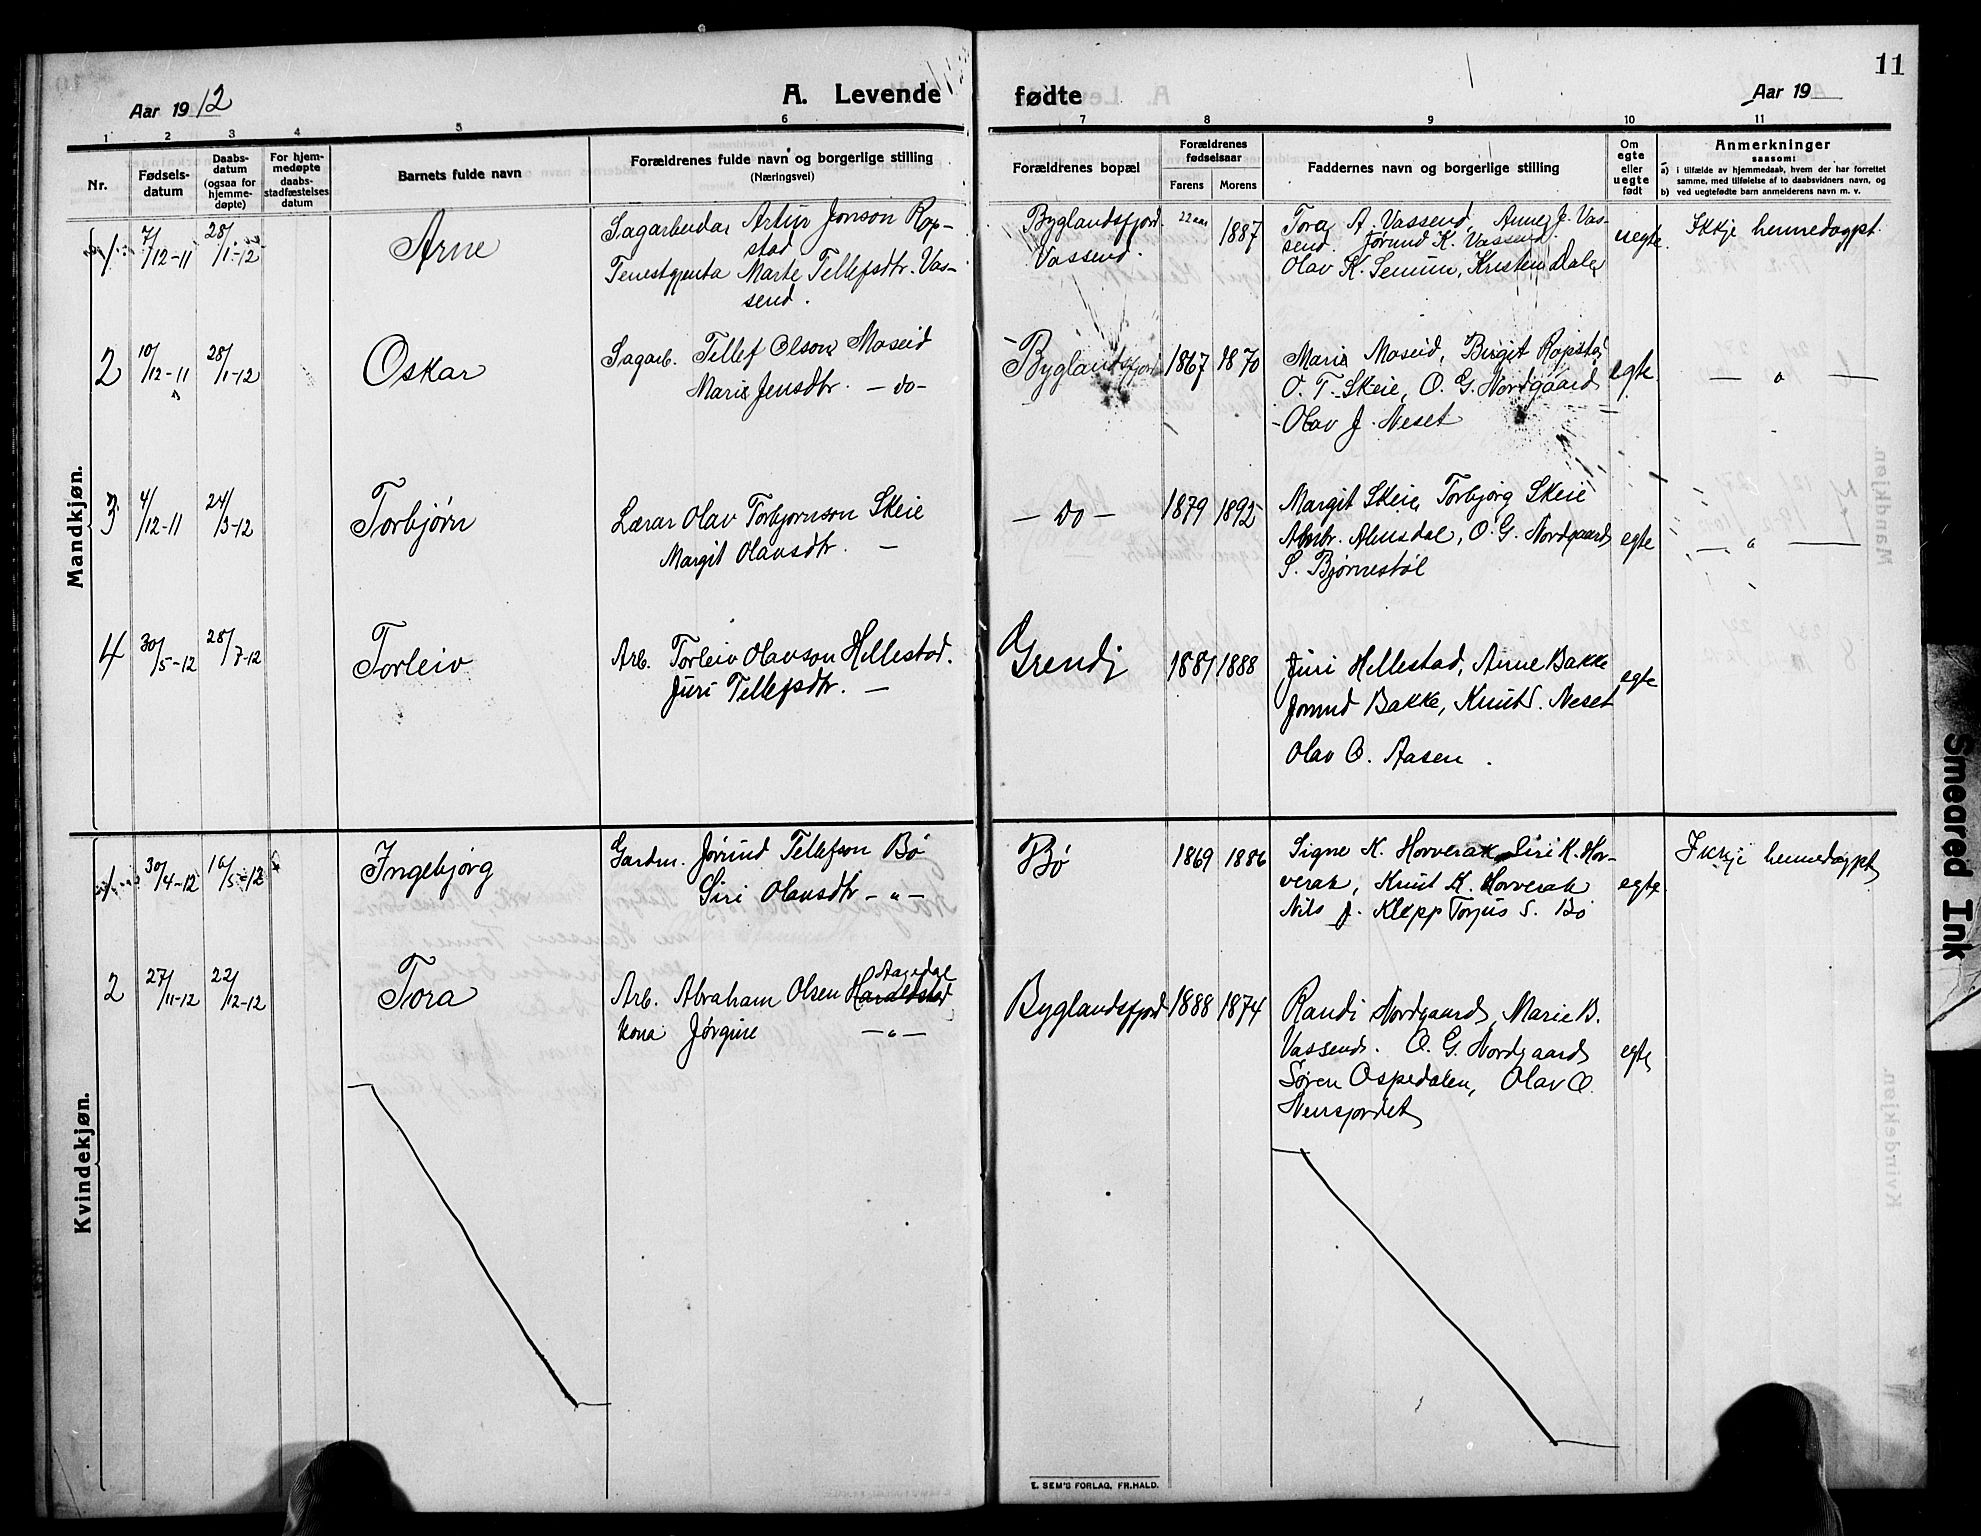 11
Aar 1912
A. Levende fødte
Aar 19
1 2 3 4 5 6 7 8 9 10 11
Nr.
Fødsels-
datum
Daabs-
datum
(ogsaa for
hjemme-
døpte)
For hjem-
medøpte
daabs-
stadfæstelses
datum
Barnets fulde navn
Forældrenes fulde navn og borgerlige stilling
(Næringsvei)
Forældrenes bopæl
Forældrenes
fødselsaar
Farens Morens
Faddernes navn og borgerlige stilling
Om
egte
eller
uegte
født
Anmerkninger
saasom:
a) i tilfælde av hjemmedaab, hvem der har forrettet
samme, med tilføielse af to daabsvidners navn, og
b) ved uegtefødte barn anmelderens navn m. v.
Mandkjøn.
1 7/12-11 28/1-12 Arne
Sagarbeidar Artur Jonson Rop-
stad
Tenestgjenta Marte Tellefsdtr. Vas-
send.
Byglandsfjord
Vassend.
22 aar 1887
Tora A. Vassend, Anne J. Vas-
send. Jorund K. Vassend.
Olav K. Senum, Kristen Dale
uegte Ikkje heimedøypt
2 10/12-11 28/1-12 Oskar
Sagarb. Tellef Olson Moseid
Marie Jensdtr. - do -
Byglandsfjord 1867 1870
Marie Moseid, Birgit Ropstad
O. T. Skeie, O. G. Nordgaard
Olav J. Neset
egte — " —
3 4/12-11 24/3-12 Torbjørn
Lærar Olav Torbjornson Skeie
Margit Olavsdtr. —
- do - 1879 1892
Margit Skeie, Torbjørg Skeie
Ahnsdal, O. G. Nordgaard
S. Bjørnestøl
egte — " —
4 30/5-12 28/7-12 Torleiv
Arb. Torleiv Olavson Hellestad.
Juri Tellefsdtr. —
Grendi 1881 1888
Juri Hellestad, Anne Bakke
Jorund Bakke, Knut S. Neset
Olav O. Aasen.
egte
Kvindekjøn.
1 30/4-12 16/5-12 Ingebjørg
Gardm. Jørund Tellefson Bø
Siri Olavsdtr - " -
Bø 1869 1886
Signe K. Horverak, Siri K. Hor-
verak, Knut K. Horverak
Nils J. Klepp Torjus S. Bø
egte Ikkje heimedøypt
2 27/11-12 22/12-12 Tora
Aagedal
Arb. Abraham Olsen Haraldstad
kona Jørgine - " -
Byglandsfjord 1888 1874
Randi Nordgaard, Marie B.
Vassend. O. G. Nordgaard
Søren Ospedalen, Olav O.
egte
E. SEM'S FORLAG, FR.HALD.
Smeared Ink